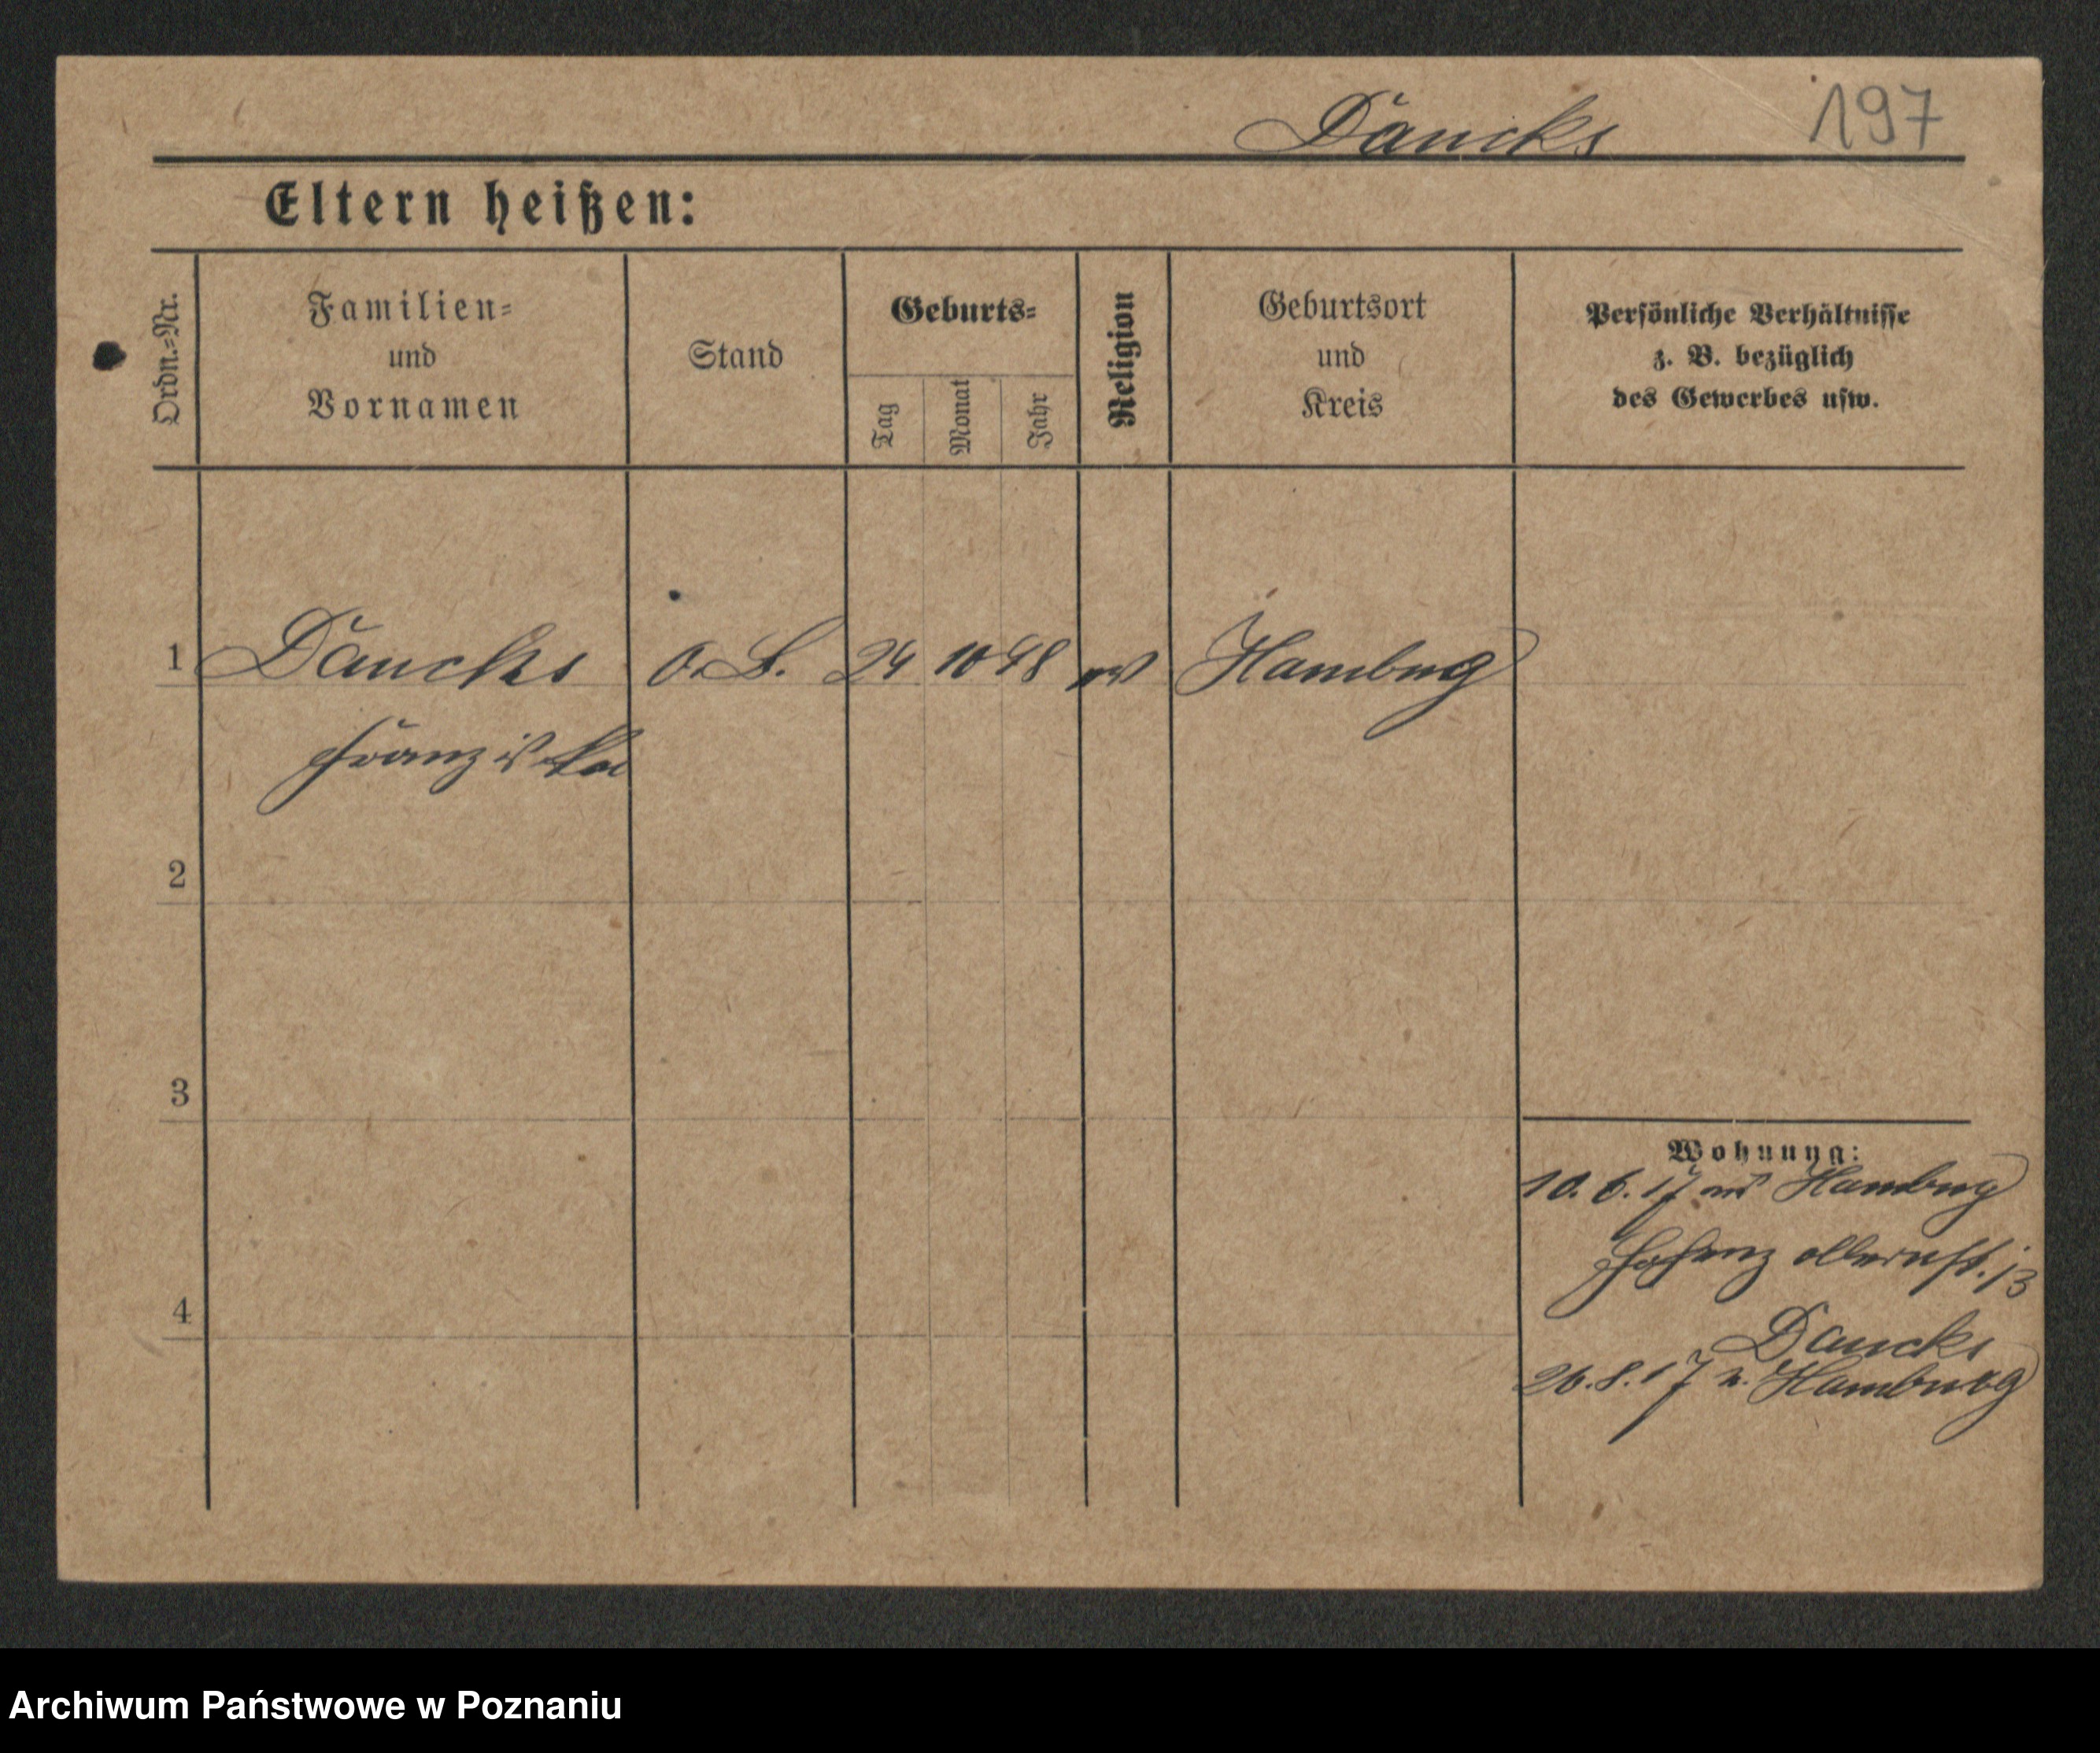 Dancks 197
Eltern heißen:
Ordn.=Nr.
Familien=
und
Vornamen
Stand
Geburts=
Tag
Monat
Jahr
Religion
Geburtsort
und
Kreis
Persönliche Verhältnisse
z. B. bezüglich
des Gewerbes usw.
1 Dancks 24 10 48 Hamburg
Franziska
2
3
Wohnung:
10. 6. 17 aus Hamburg
Hohenzollernst. 13
4
Dancks
26. 8. 17 n. Hamburg
Archiwum Państwowe w Poznaniu